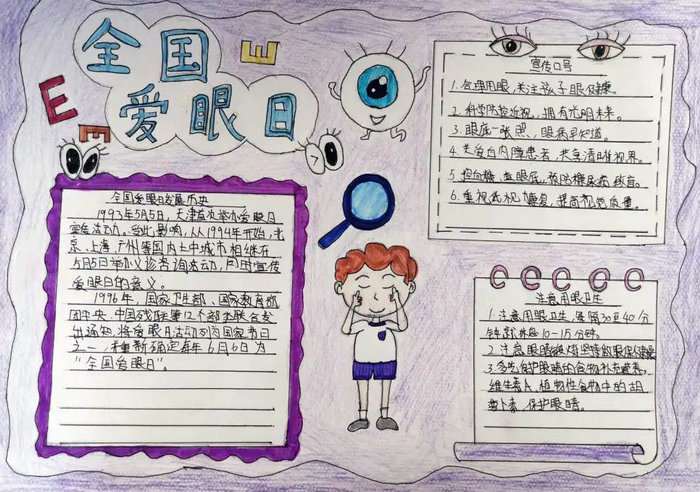 全国
爱眼日
E
E
E
E
全国爱眼日发展历史
1993年5月5日,天津首次举办爱眼日
宣传活动,受此影响,从1994年开始,北
京、上海、广州等国内大中城市相继在
5月5日举办义诊咨询活动,同时宣传
爱眼日的意义。
1996年,国家卫生部、国家教育部
团中央、中国残联等12个部委联合发
出通知,将爱眼日活动列为国家节日
之一,重新确定每年6月6日为
“全国爱眼日”。
宣传口号
1.合理用眼,关注孩子眼健康。
2.科学防控近视,拥有光明未来。
3.眼底一张照,眼病早知道。
4.关爱白内障患者,共享清晰视界。
5.控血糖,查眼底,预防糖尿病致盲。
6.重视低视力康复,提高视觉质量。
注意用眼卫生
1.注意用眼卫生,每隔30至40分
钟就休息10-15分钟。
2.注意眼睛
3.多吃保护眼睛的食物补充
维生素A,植物性食物中的胡
萝卜素,保护眼睛。